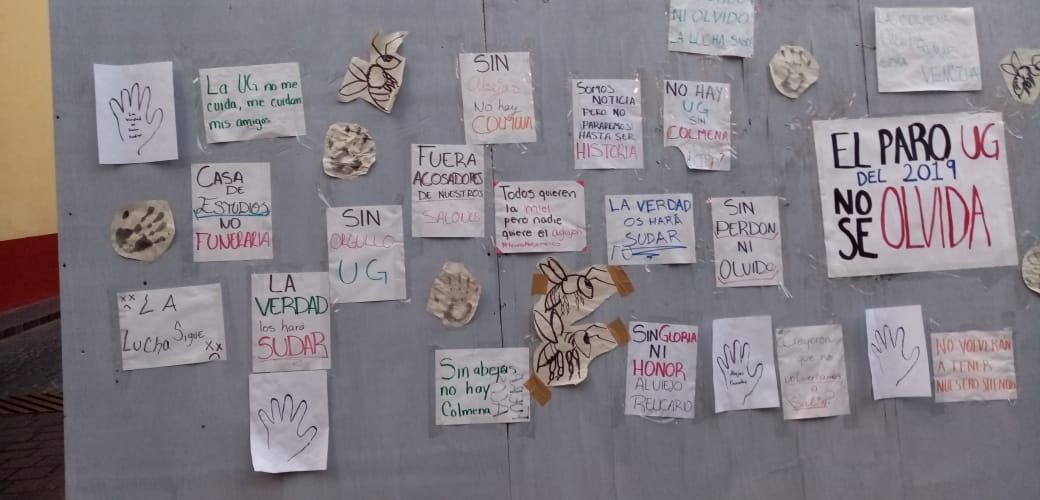 NI OLVIDO
LA LUCHA SIGUE
LA COLMENA
La UG no me
cuida, me cuidan
mis amigos
SIN
Abejas
No hay
COLMENA
SOMOS
NOTICIA
PERO NO
PARAREMOS
HASTA SER
HISTORIA
NO HAY
UG
SIN
COLMENA
EL PARO UG
DEL 2019
NO
SE OLVIDA
CASA
DE
ESTUDIOS
NO
FUNERARIA
FUERA
ACOSADORES
DE NUESTROS
SALONES
Todos quieren
la miel
pero nadie
quiere el aguijón
LA VERDAD
OS HARÁ
SUDAR
SIN
PERDON
NI
OLVIDO
SIN
ORGULLO
UG
LA
Lucha Sigue
LA
VERDAD
los hará
SUDAR
Sin abejas
no hay
Colmena
SIN GLORIA
NI
HONOR
AL VIEJO
RELICARIO
que no
volveríamos
a
NO VOLVERÁN
A TENER
NUESTRO SILENCIO